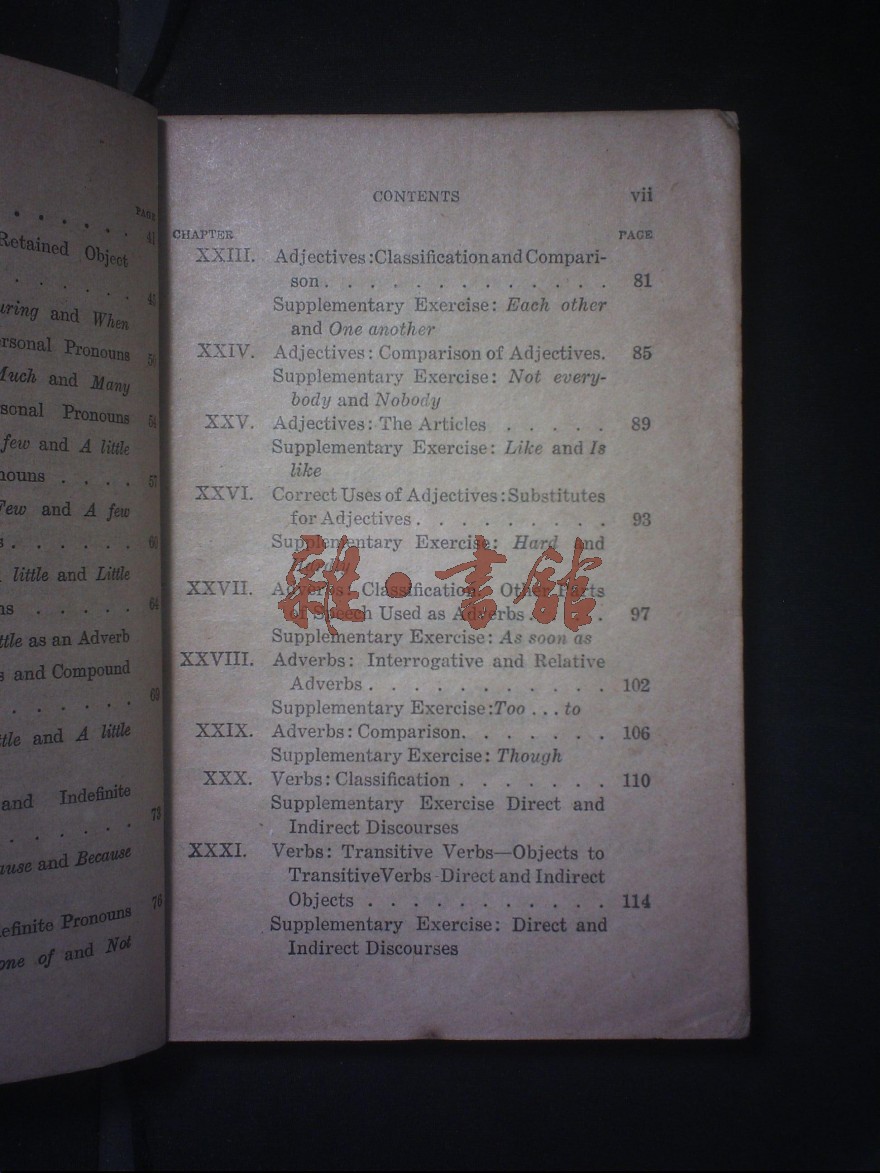 PAGE
41
Retained Object
41
uring and When
ersonal Pronouns 50
Much and Many
sonal Pronouns 54
few and A little
nouns . . . . 57
Few and A few
s . . . . . . 60
little and Little
ns . . . . . 64
ttle as an Adverb
s and Compound
. . . . . . 69
ttle and A little
and Indefinite
. . . . . . 73
ause and Because
76
efinite Pronouns
one of and Not
CONTENTS vii
CHAPTER PAGE
XXIII. Adjectives: Classification and Compari-
son . . . . . . . . . . . . . 81
Supplementary Exercise: Each other
and One another
XXIV. Adjectives: Comparison of Adjectives. 85
Supplementary Exercise: Not every-
body and Nobody
XXV. Adjectives: The Articles . . . . . 89
Supplementary Exercise: Like and Is
like
XXVI. Correct Uses of Adjectives: Substitutes
for Adjectives . . . . . . . . . 93
Supplementary Exercise: Hard and
Hardly
XXVII. Adverbs: Classification. Other Parts
of Speech Used as Adverbs . . . . 97
Supplementary Exercise: As soon as
雜·書館
XXVIII. Adverbs: Interrogative and Relative
Adverbs . . . . . . . . . . . 102
Supplementary Exercise: Too . . . to
XXIX. Adverbs: Comparison. . . . . . . 106
Supplementary Exercise: Though
XXX. Verbs: Classification . . . . . . . 110
Supplementary Exercise Direct and
Indirect Discourses
XXXI. Verbs: Transitive Verbs—Objects to
Transitive Verbs-Direct and Indirect
Objects . . . . . . . . . . . 114
Supplementary Exercise: Direct and
Indirect Discourses